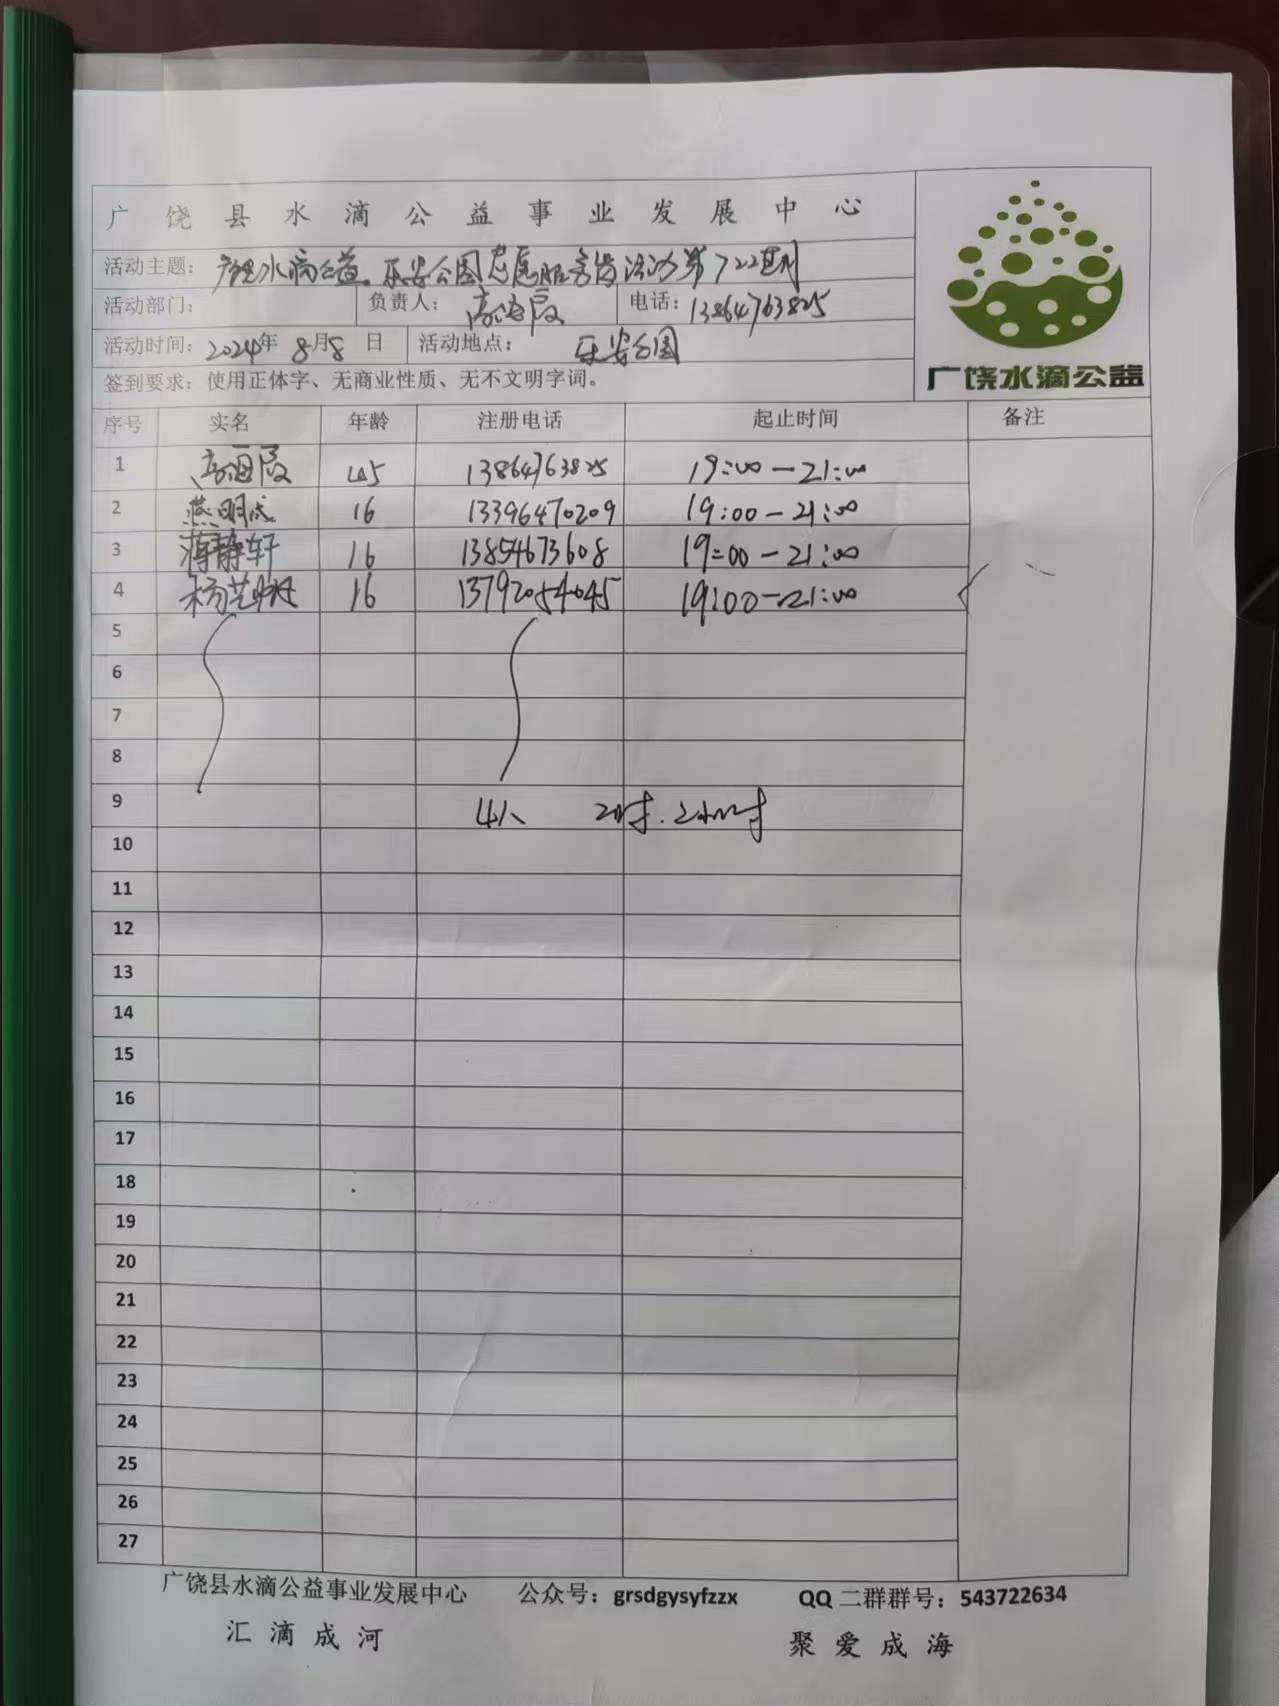 广饶县水滴公益事业发展中心
活动主题：广饶水滴公益.乐安公园志愿服务岗活动第722期
活动部门： 负责人：高海霞 电话：13864763825
活动时间：2024年8月8日 活动地点：乐安公园
签到要求：使用正体字、无商业性质、无不文明字词。
广饶水滴公益
序号 实名 年龄 注册电话 起止时间 备注
1 高海霞 45 13864763825 19:00-21:00
2 燕明成 16 13396470209 19:00-21:00
3 蒋静轩 16 13854673608 19:00-21:00
4 杨艺 16 13792054045 19:00-21:00
5
6
7
8
9 4人 2时.2小时
10
11
12
13
14
15
16
17
18
19
20
21
22
23
24
25
26
27
广饶县水滴公益事业发展中心 公众号：grsdgysyfzzx QQ二群群号：543722634
汇滴成河 聚爱成海